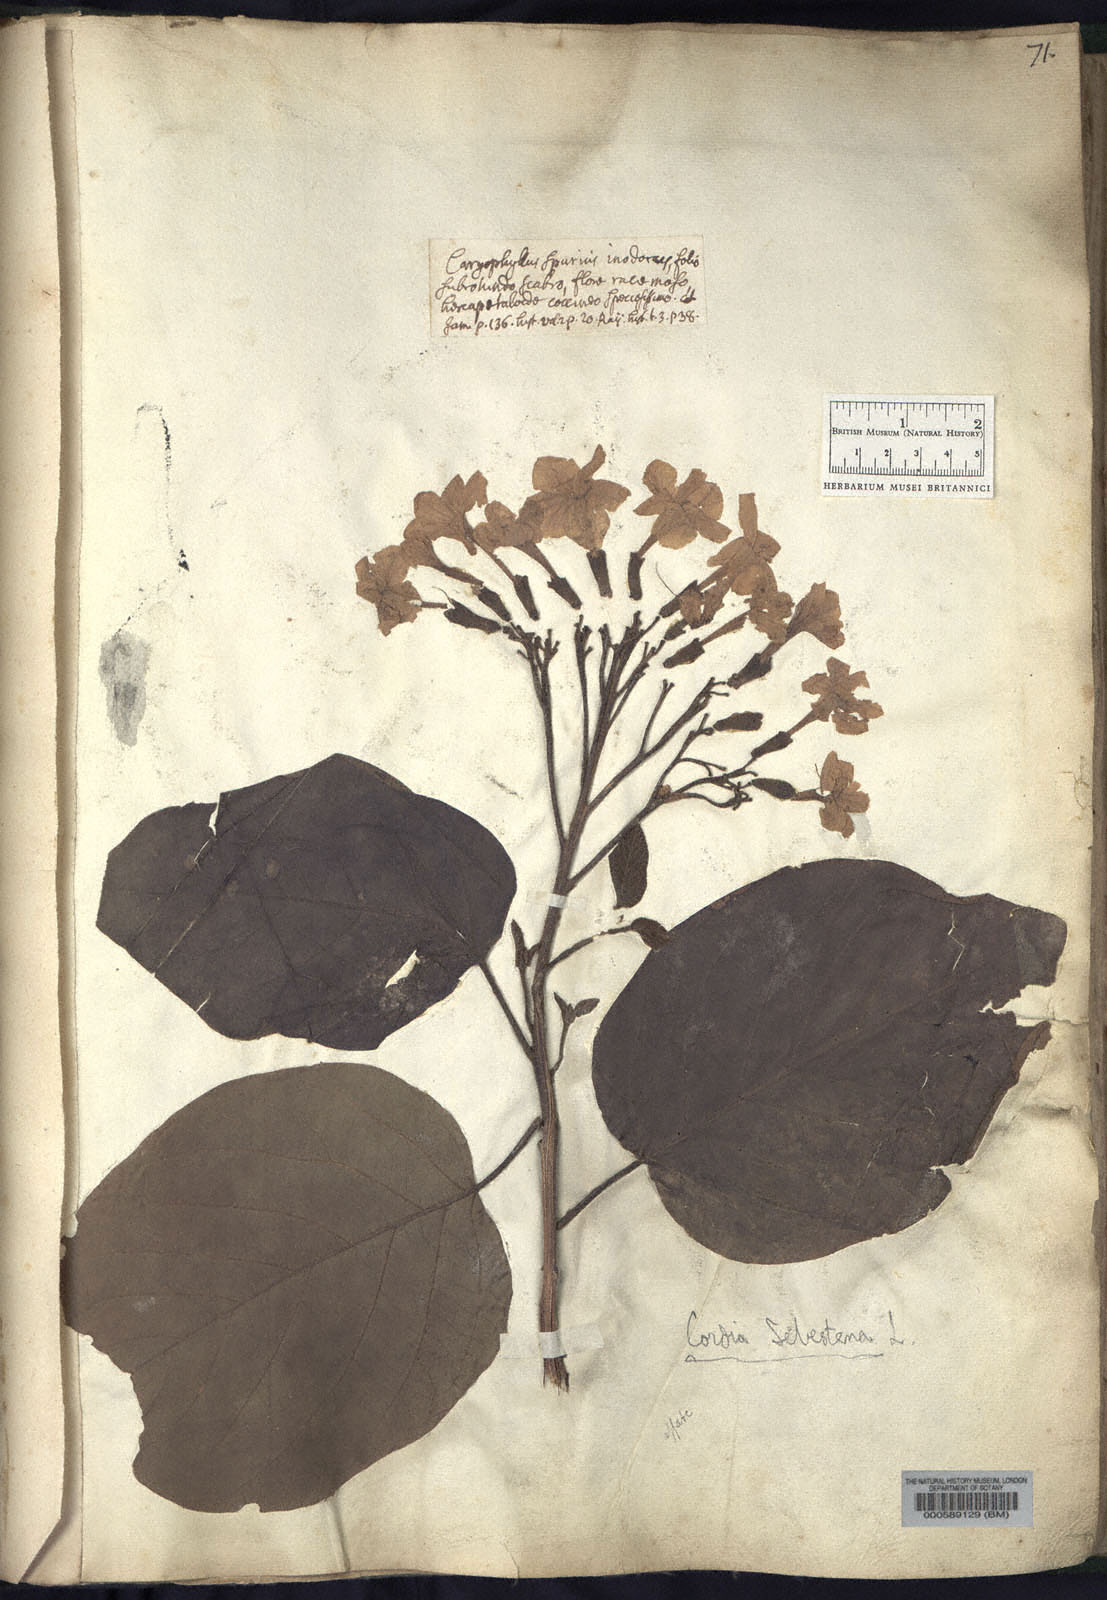 71.
Caryophyllus spurius inodorus, folio
subrotundo scabro, flore racemoso
hexapetaloide coccineo speciosissimo. Cat
Jam. p. 136. hist. vol. 2 p. 20. Raij. hist. t. 3. p 38.
1 2
BRITISH MUSEUM (NATURAL HISTORY)
1 2 3 4 5
HERBARIUM MUSEI BRITANNICI
Cordia Sebestena L.
THE NATURAL HISTORY MUSEUM, LONDON
DEPARTMENT OF BOTANY
000589129 (BM)